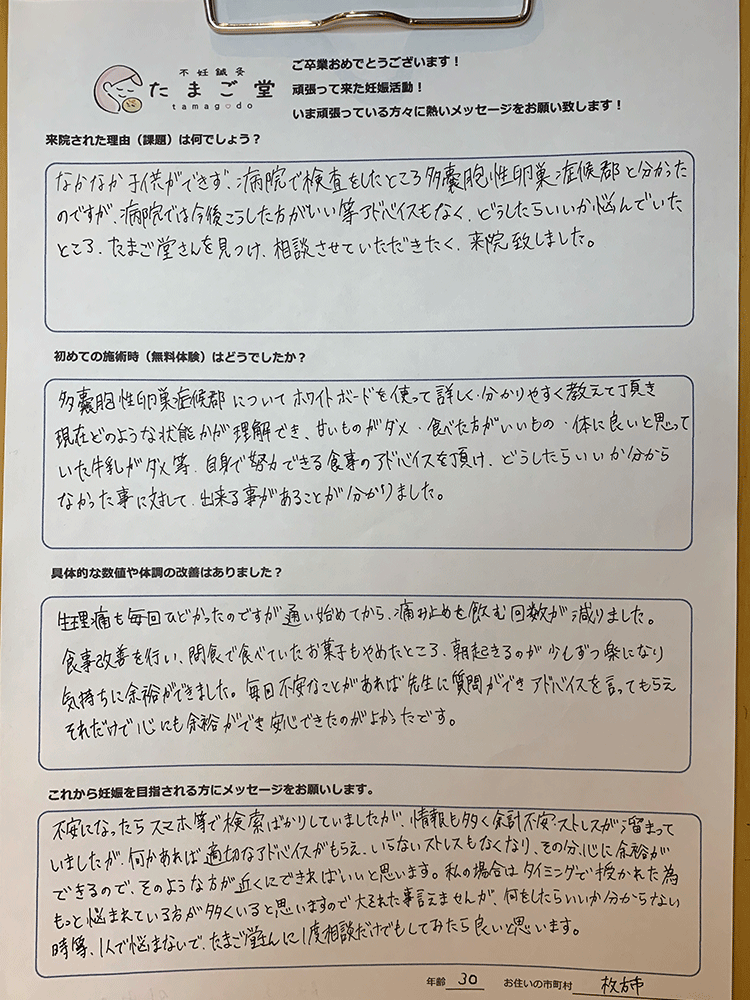 不妊鍼灸
たまご堂
tamagodo
ご卒業おめでとうございます！
頑張って来た妊娠活動！
いま頑張っている方々に熱いメッセージをお願い致します！
来院された理由（課題）は何でしょう？
なかなか子供ができず、病院で検査をしたところ多嚢胞性卵巣症候郡と分かった
のですが、病院では今後こうした方がいい等アドバイスもなく、どうしたらいいか悩んでいた
ところ、たまご堂さんを見つけ、相談させていただきたく、来院致しました。
初めての施術時（無料体験）はどうでしたか？
多嚢胞性卵巣症候郡についてホワイトボードを使って詳しく分かりやすく教えて頂き
現在どのような状態かが理解でき、甘いものがダメ・食べた方がいいもの・体に良いと思って
いた牛乳がダメ等、自身で努力できる食事のアドバイスを頂け、どうしたらいいか分から
なかった事に対して、出来る事があることが分かりました。
具体的な数値や体調の改善はありました？
生理痛も毎回ひどかったのですが通い始めてから、痛み止めを飲む回数が減りました。
食事改善を行い、間食で食べていたお菓子もやめたところ、朝起きるのが少しずつ楽になり
気持ちに余裕ができました。毎回不安なことがあれば先生に質問ができアドバイスを言ってもらえ
それだけで心にも余裕ができ安心できたのがよかったです。
これから妊娠を目指される方にメッセージをお願いします。
不安になったらスマホ等で検索ばかりしていましたが、情報も多く余計不安・ストレスが溜まって
いましたが、何かあれば適切なアドバイスがもらえ、いらないストレスもなくなり、その分、心に余裕が
できるので、そのような方が近くにできればいいと思います。私の場合はタイミングで授かれた為
もっと悩まれている方が多くいると思いますので大それた事言えませんが、何をしたらいいか分からない
時等、1人で悩まないで、たまご堂さんに1度相談だけでもしてみたら良いと思います。
年齢 30 お住いの市町村 枚方市